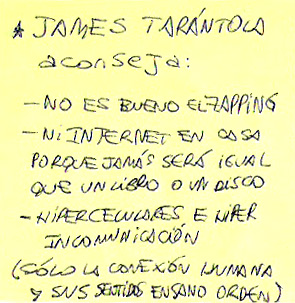 * JAMES TARÁNTOLA
aconseja:
- NO ES BUENO EL ZAPPING
- NI INTERNET EN CASA
PORQUE JAMÁS SERÁ IGUAL
QUE UN LIBRO O UN DISCO
- HIPERCELULARES E HIPER
INCOMUNICACIÓN
(SÓLO LA CONEXIÓN HUMANA
Y SUS SENTIDOS EN SANO ORDEN)